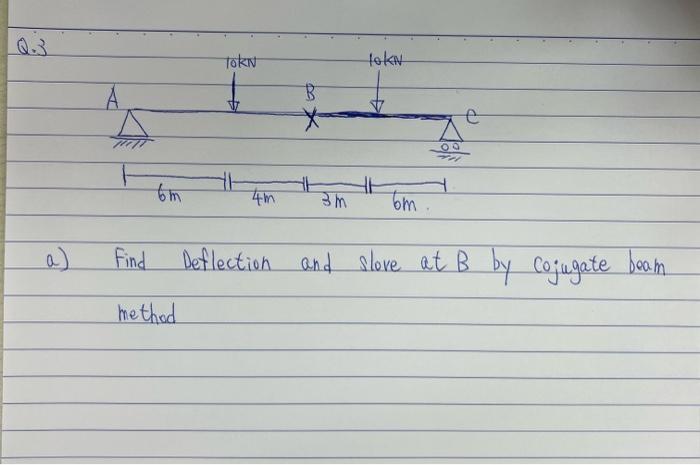 Q.3
10kN 10kN
A B C
6m 4m 3m 6m.
a) Find Deflection and slove at B by cojugate beam
method